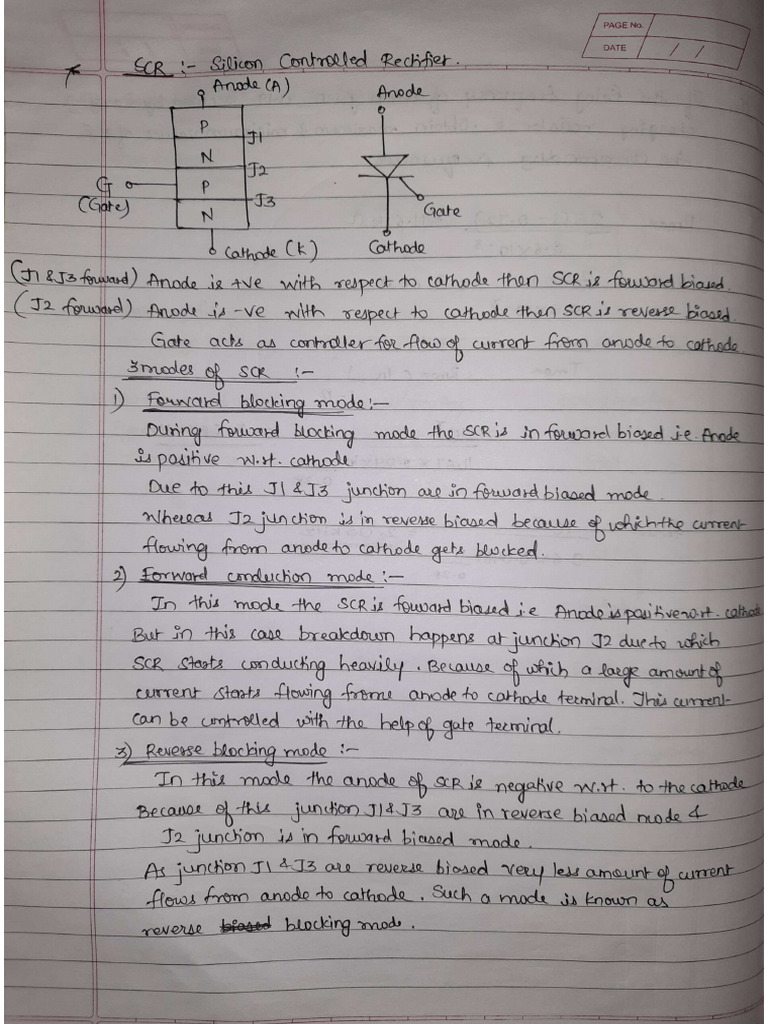 PAGE No.
DATE / /
* SCR :- Silicon Controlled Rectifier.
Anode (A)
Anode
P
J1
N
J2
P
J3
N
G
(Gate)
Gate
Cathode (K)
Cathode
(J1 & J3 forward) Anode is +ve with respect to cathode then SCR is forward biased.
(J2 forward) Anode is -ve with respect to cathode then SCR is reverse biased.
Gate acts as controller for flow of current from anode to cathode
3 modes of SCR :-
1) Forward blocking mode :-
During forward blocking mode the SCR is in forward biased i.e. Anode
is positive w.r.t. cathode
Due to this J1 & J3 junction are in forward biased mode.
Whereas J2 junction is in reverse biased because of which the current
flowing from anode to cathode gets blocked.
2) Forward conduction mode :-
In this mode the SCR is forward biased i.e Anode is positive w.r.t. cathode
But in this case breakdown happens at junction J2 due to which
SCR starts conducting heavily. Because of which a large amount of
current starts flowing frome anode to cathode terminal. This current
can be controlled with the help of gate terminal.
3) Reverse blocking mode :-
In this mode the anode of SCR is negative w.r.t. to the cathode
Because of this junction J1 & J3 are in reverse biased mode &
J2 junction is in forward biased mode.
As junction J1 & J3 are reverse biased very less amount of current
flows from anode to cathode. Such a mode is known as
reverse biased blocking mode.